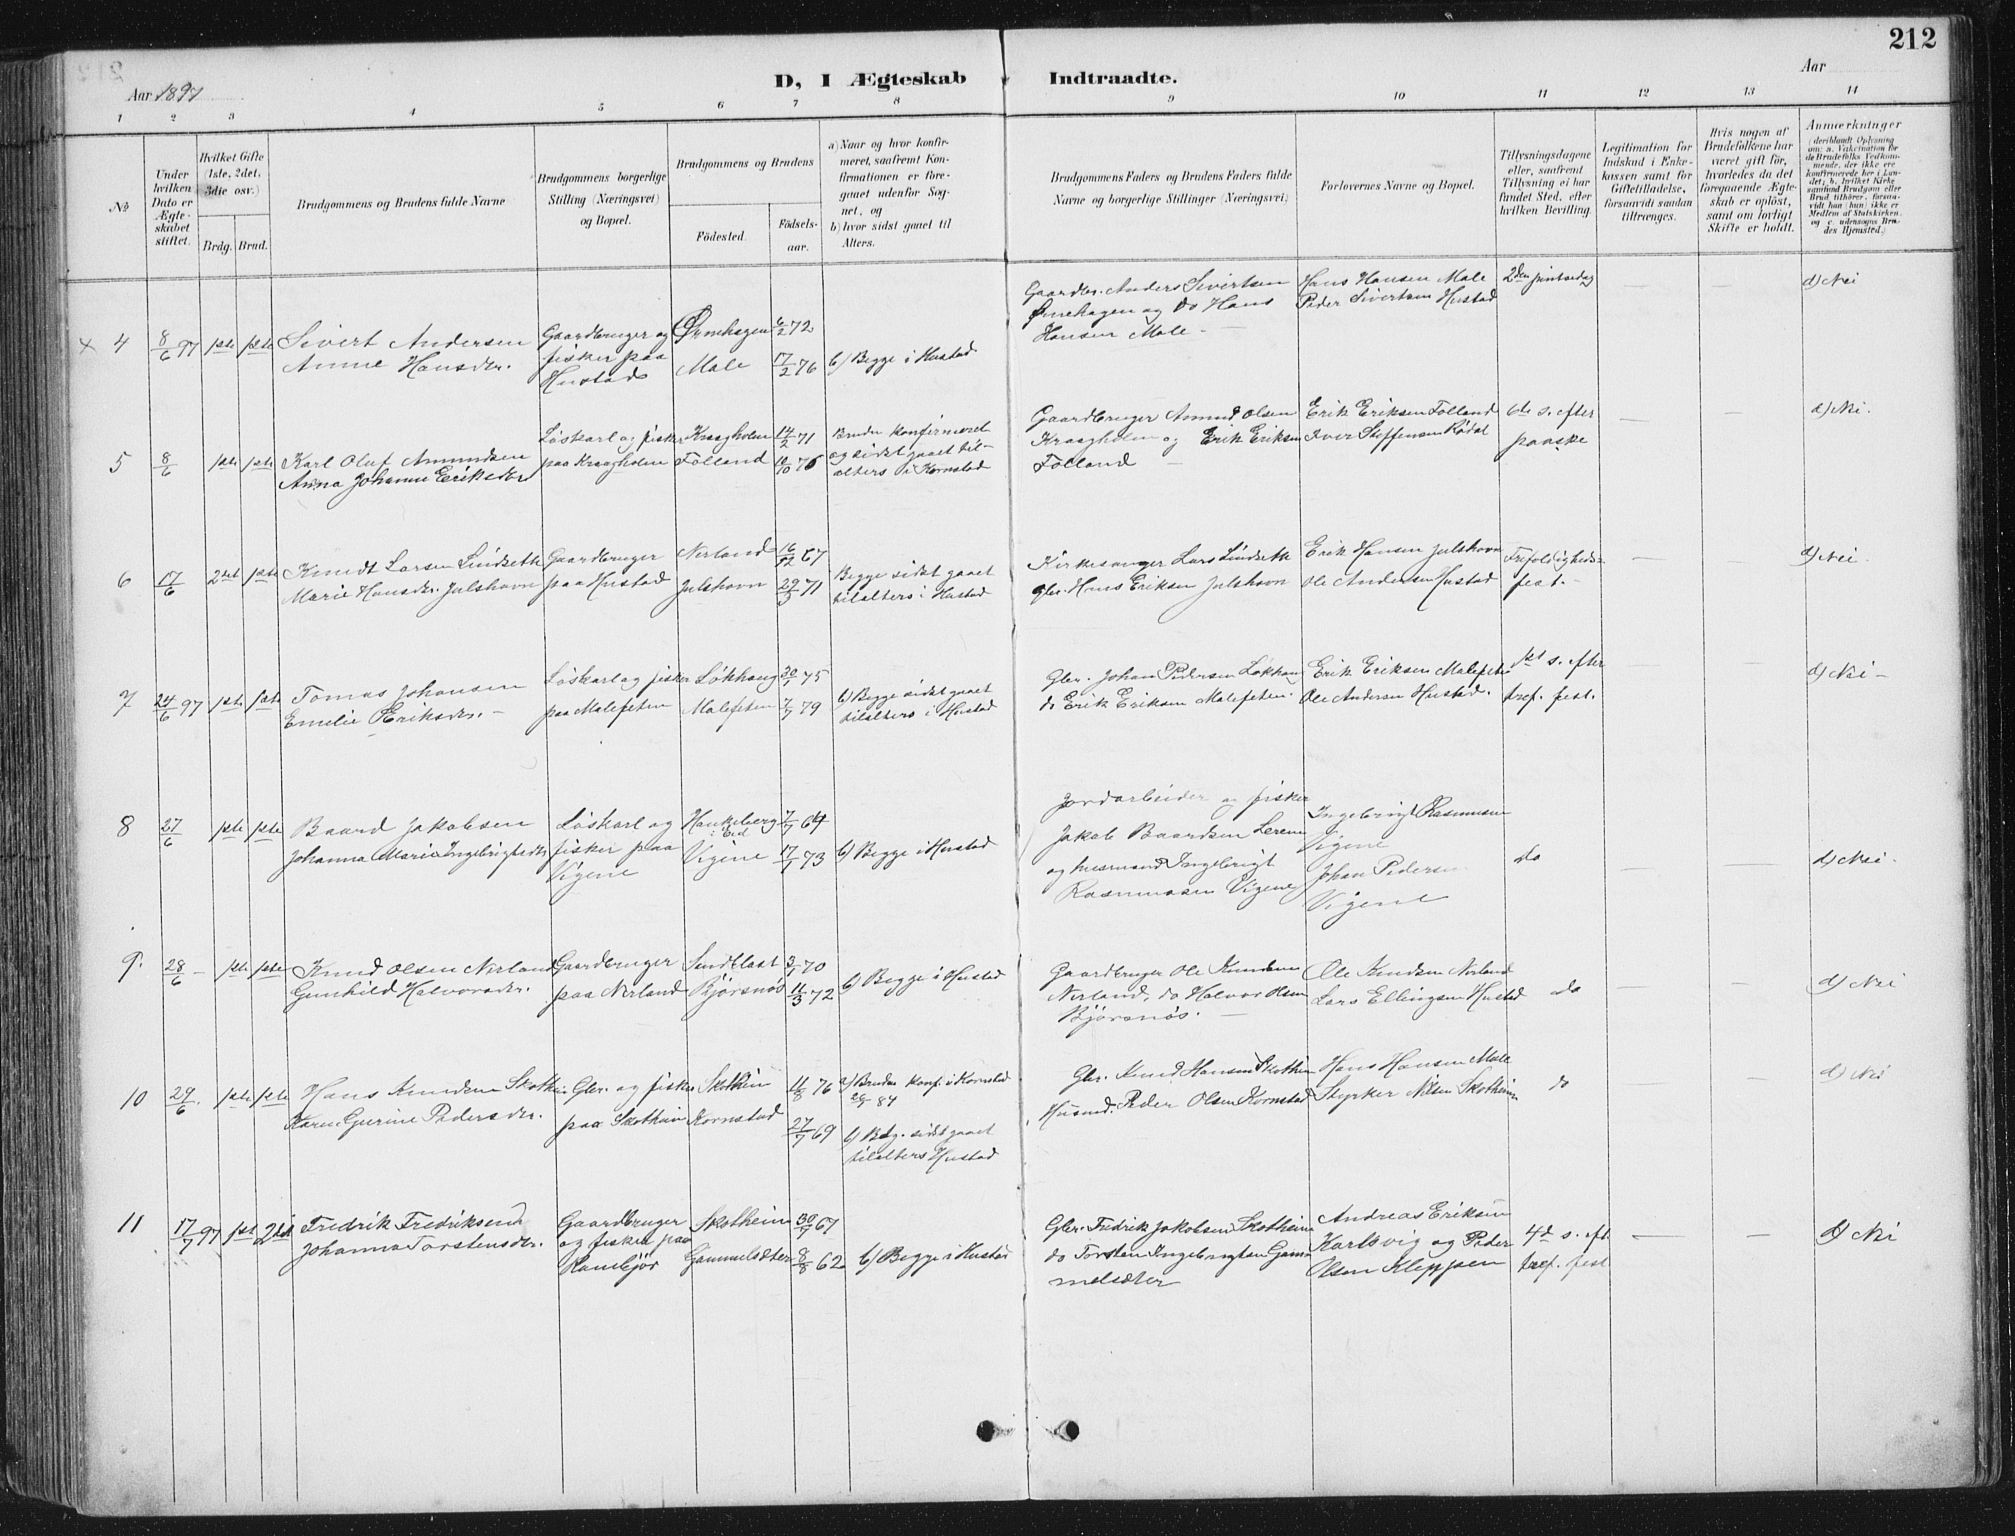 212
D, I Ægteskab Indtraadte.
Aar 1897
Aar
1 2 3 4 5 6 7 8 9 10 11 12 13 14
No
Under hvilken Dato er Ægteskabet stiftet.
Hvilket Gifte (1ste, 2det, 3die osv.)
Brdg. Brud.
Brudgommens og Brudens fulde Navne
Brudgommens borgerlige Stilling (Næringsvei) og Bopæl.
Brudgommens og Brudens
Fødested.
Fødselsaar.
a) Naar og hvor konfirmeret, saafremt Konfirmationen er foregaaet udenfor Sognet, og
b) hvor sidst gaaet til Alters.
Brudgommens Faders og Brudens Faders fulde Navne og borgerlige Stillinger (Næringsvei)
Forlovernes Navne og Bopæl.
Tillysningsdagene eller, saafremt Tillysning ei har fundet Sted, efter hvilken Bevilling.
Legitimation for Indskud i Enkekassen samt for Giftetilladelse, forsaavidt saadan tiltrænges.
Hvis nogen af Brudefolkene har været gift før, hvorledes da det foregaaende Ægteskab er opløst, samt om lovligt Skifte er holdt.
Anmærkninger
(deriblandt Oplysning om: a. Vakcination for de Brudefolks Vedkommende, der ikke ere konfirmerede her i Landet; b. hvilket Kirkesamfund Brudgom eller Brud tilhører, forsaavidt han (hun) ikke er Medlem af Statskirken, og c. udensogns Brudes Hjemsted.)
x 4 8/6 97 1ste 1ste Sivert Andersen
Anne Hansdr.
Gaardbruger og
fisker paa
Hustad
Ørnehagen 6/2 72
Male 17/2 76
b) Begge i Hustad
Gaardbr. Anders Sivertsen
Ørnehagen og do Hans
Hansen Male -
Hans Hansen Male
Peder Sivertsen Hustad
2den pintsedag
d) Nei
5 8/6 1ste 1ste Karl Oluf Amundsen
Anna Johanne Eriksdr
Løskarl og fisker
paa Kraagholm
Kraagholm 14/2 71
Folland 76
Bruden konfirmeret
og sidst gaaet til-
alters i Kornstad
Gaardbruger Amund Olsen
Kraagholm og Erik Eriksen
Folland -
Erik Eriksen Folland
Iver Steffensen Rødal
6te s. efter
paaske
d) Nei.
6 17/6 2det 1ste Knudt Larsen Lindseth
Marie Hansdr. Julshavn
Gaardbruger
paa Hustad
Nerland 16/12 67
Julshavn 71
Begge sidst gaaet
tilalters i Hustad
Kirkesanger Lars Lindseth
Gbr. Hans Eriksen Julshavn
Erik Hansen Julshavn
Ole Andersen Hustad
Trefoldigheds-
fest.-
d) Nei.
7 24/6 97 1ste 1ste Tomas Johansen
Emelie Eriksdr. -
Løskarl og fisker
paa Malefeten
Løkhaug 75
Malefeten 7/7 79
b) Begge sidst gaaet
tilalters i Hustad
Gbr. Johan Pedersen Løkhaug
do Erik Eriksen Malefeten.
Erik Eriksen Malefeten
Ole Andersen Hustad.
1ste s. efter
tref. fest.
d) Nei -
8 27/6 1ste 1ste Baard Jakobsen
Johanna Marie Ingebrigtsdr
Løskarl og
fisker paa
Vigene
i Eid
64
Vigene 73
b) Begge i Hustad
Jordarbeider og fisker
Jakob Baardsen
og husmand Ingebrigt
Rasmussen Vigene
Ingebrigt Rasmussen
Vigene
Johan Pedersen
Vigene
do
d) Nei.
9. 28/6 - 1ste 1ste Knud Olsen Nerland
Gunhild Halvorsdr.
Gaardbruger
paa Nerland
70
Bjørsnøs 11/3 72
b) Begge i Hustad
Gaardbruger Ole Knudsen
Nerland, do Halvor Olsen
Bjørsnøs. -
Ole Knudsen Nerland
Lars Ellingsen Hustad
do
d) Nei
10 29/6. 1ste 1ste Hans Knudsen Skothei
Karen Gurine Pedersdr.
Gbr. og fisker
paa Skotheim
Skotheim 11/8 76
Kornstad 27/7 69
a) Bruden konf. i Kornstad
84
b) Bdg. sidst gaaet
tilalters Hustad
Gbr. Knud Hansen Skotheim
Husmd. Peder Olsen Kornstad
Hans Hansen Male
Styrker Nilsen Skotheim
do
d) Nei
11 17/7 97 1ste 2det Fredrik Fredriksen
Johanna Torstensdr.
Gaardbruger
og fisker paa
Skotheim 30/7 67
Gammelsæter 8/8 62
b) Begge i Hustad
Gbr. Fredrik Jakobsen Skotheim
do Torsten Ingebrigtsen Gam-
melsæter
Andreas Eriksen
Karlsvig og Peder
Olsen Kleppsen
4de s. eft
tref. fest
d) Nei